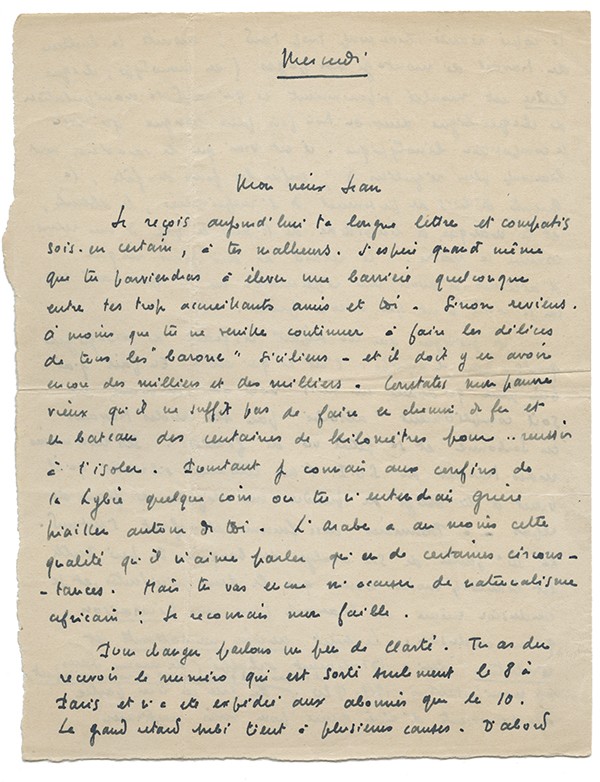 Mercredi
Mon vieux Jean
Je reçois aujourd'hui ta longue lettre et compatis
sois-en certain, à tes malheurs. J'espère quand même
que tu parviendras à élever une barrière quelconque
entre tes trop accueillants amis et toi. Sinon reviens.
A moins que tu ne veuille continuer à faire les délices
de tous les "barone" siciliens - et il doit y en avoir
encore des milliers et des milliers. Constates mon pauvre
vieux qu'il ne suffit pas de faire en chemin de fer et
en bateau des centaines de kilomètres pour .. réussir
à t'isoler. Pourtant je connais aux confins de
la Lybie quelque coin ou tu n'entendrais guère
piailler autour de toi. L'arabe a au moins cette
qualité qu'il n'aime parler qu'en de certaines circons-
-tances. Mais tu vas encore m'accuser de naturalisme
africain : Je reconnais mon faible.
Pour changer parlons un peu de Clarté. Tu as du
recevoir le numéro qui est sorti seulement le 8 à
Paris et n'a été expédié aux abonnés que le 10.
Le grand retard subi tient à plusieurs causes. D'abord